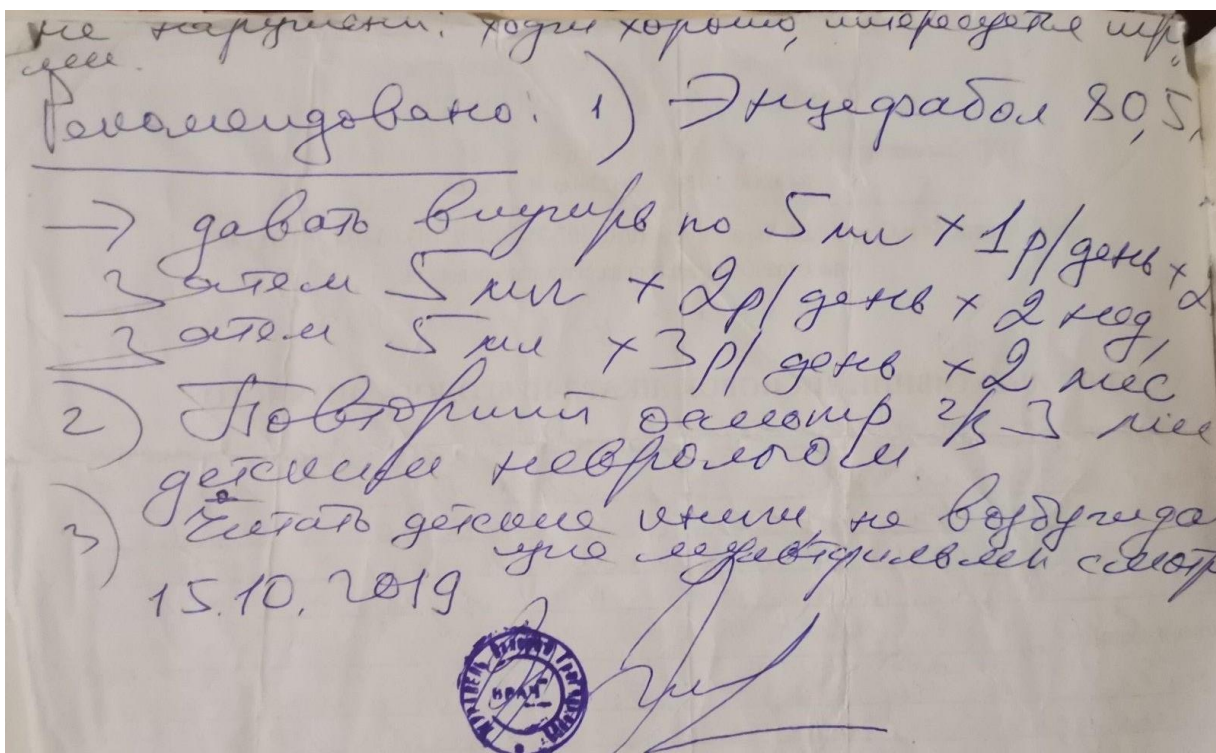 не нарушены. Ходит хорошо, интересуется игр
ами.
Рекомендовано: 1) Энцефабол 80,5,
→ давать внутрь по 5 мл × 1 р/день × 2
Затем 5 мл × 2 р/день × 2 нед,
Затем 5 мл × 3 р/день × 2 мес
2) Повторный осмотр ч/з 3 ме
детским неврологом
3) Читать детские книги, не возбуждаю
щие мультфильмы смотр
15.10.2019
врач